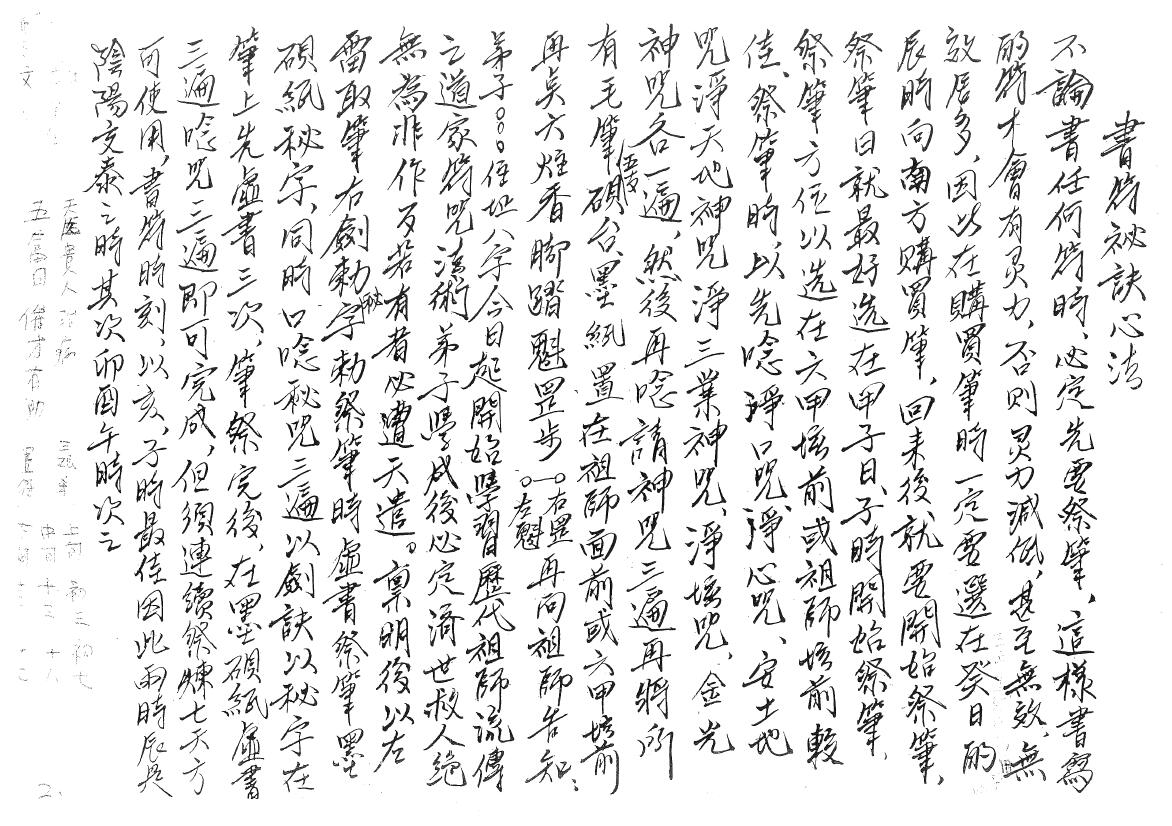 書符祕訣心法
不論書任何符時、必定先要祭筆、這樣書寫
的符才會有灵力、否則灵力減低、甚至無效、無
效居多、因以在購買筆時一定要選在癸日的
辰時向南方購買筆、回来後、就要開始祭筆、
祭筆日就最好选在甲子日、子時開始祭筆、
祭筆方位以选在六甲壇前或祖師壇前較
佳、祭筆時、以先唸淨口咒、淨心咒、安土地
咒淨天地神咒淨三業神咒、淨壇咒、金光
神咒各一遍、然後再唸請神咒三遍再將所
有毛筆硯台、墨紙置在祖師面前或六甲壇前
再点六炷香腳踏魁罡步一○右罡○左魁再向祖師告知：
弟子○○○住址八字今日起開始學習歷代祖師流傳
之道家符咒法術弟子學成後必定濟世救人絕
無為非作歹若有者必遭天遣。稟明後以左
雷取筆右劍勅字勅祭筆時虛書祭筆墨
硯紙秘字、同時口唸秘咒三遍以劍訣以秘字在
筆上先虛書三次、筆祭完後、在墨硯紙虛書
三遍唸咒三遍即可完成、但須連續祭煉七天方
可使用、書符時刻、以亥、子時最佳因此兩時辰是
陰陽交泰之時其次卯酉午時次之
天医貴人 治病
催才
上旬 初三 初七
中旬 十三 十八
2.